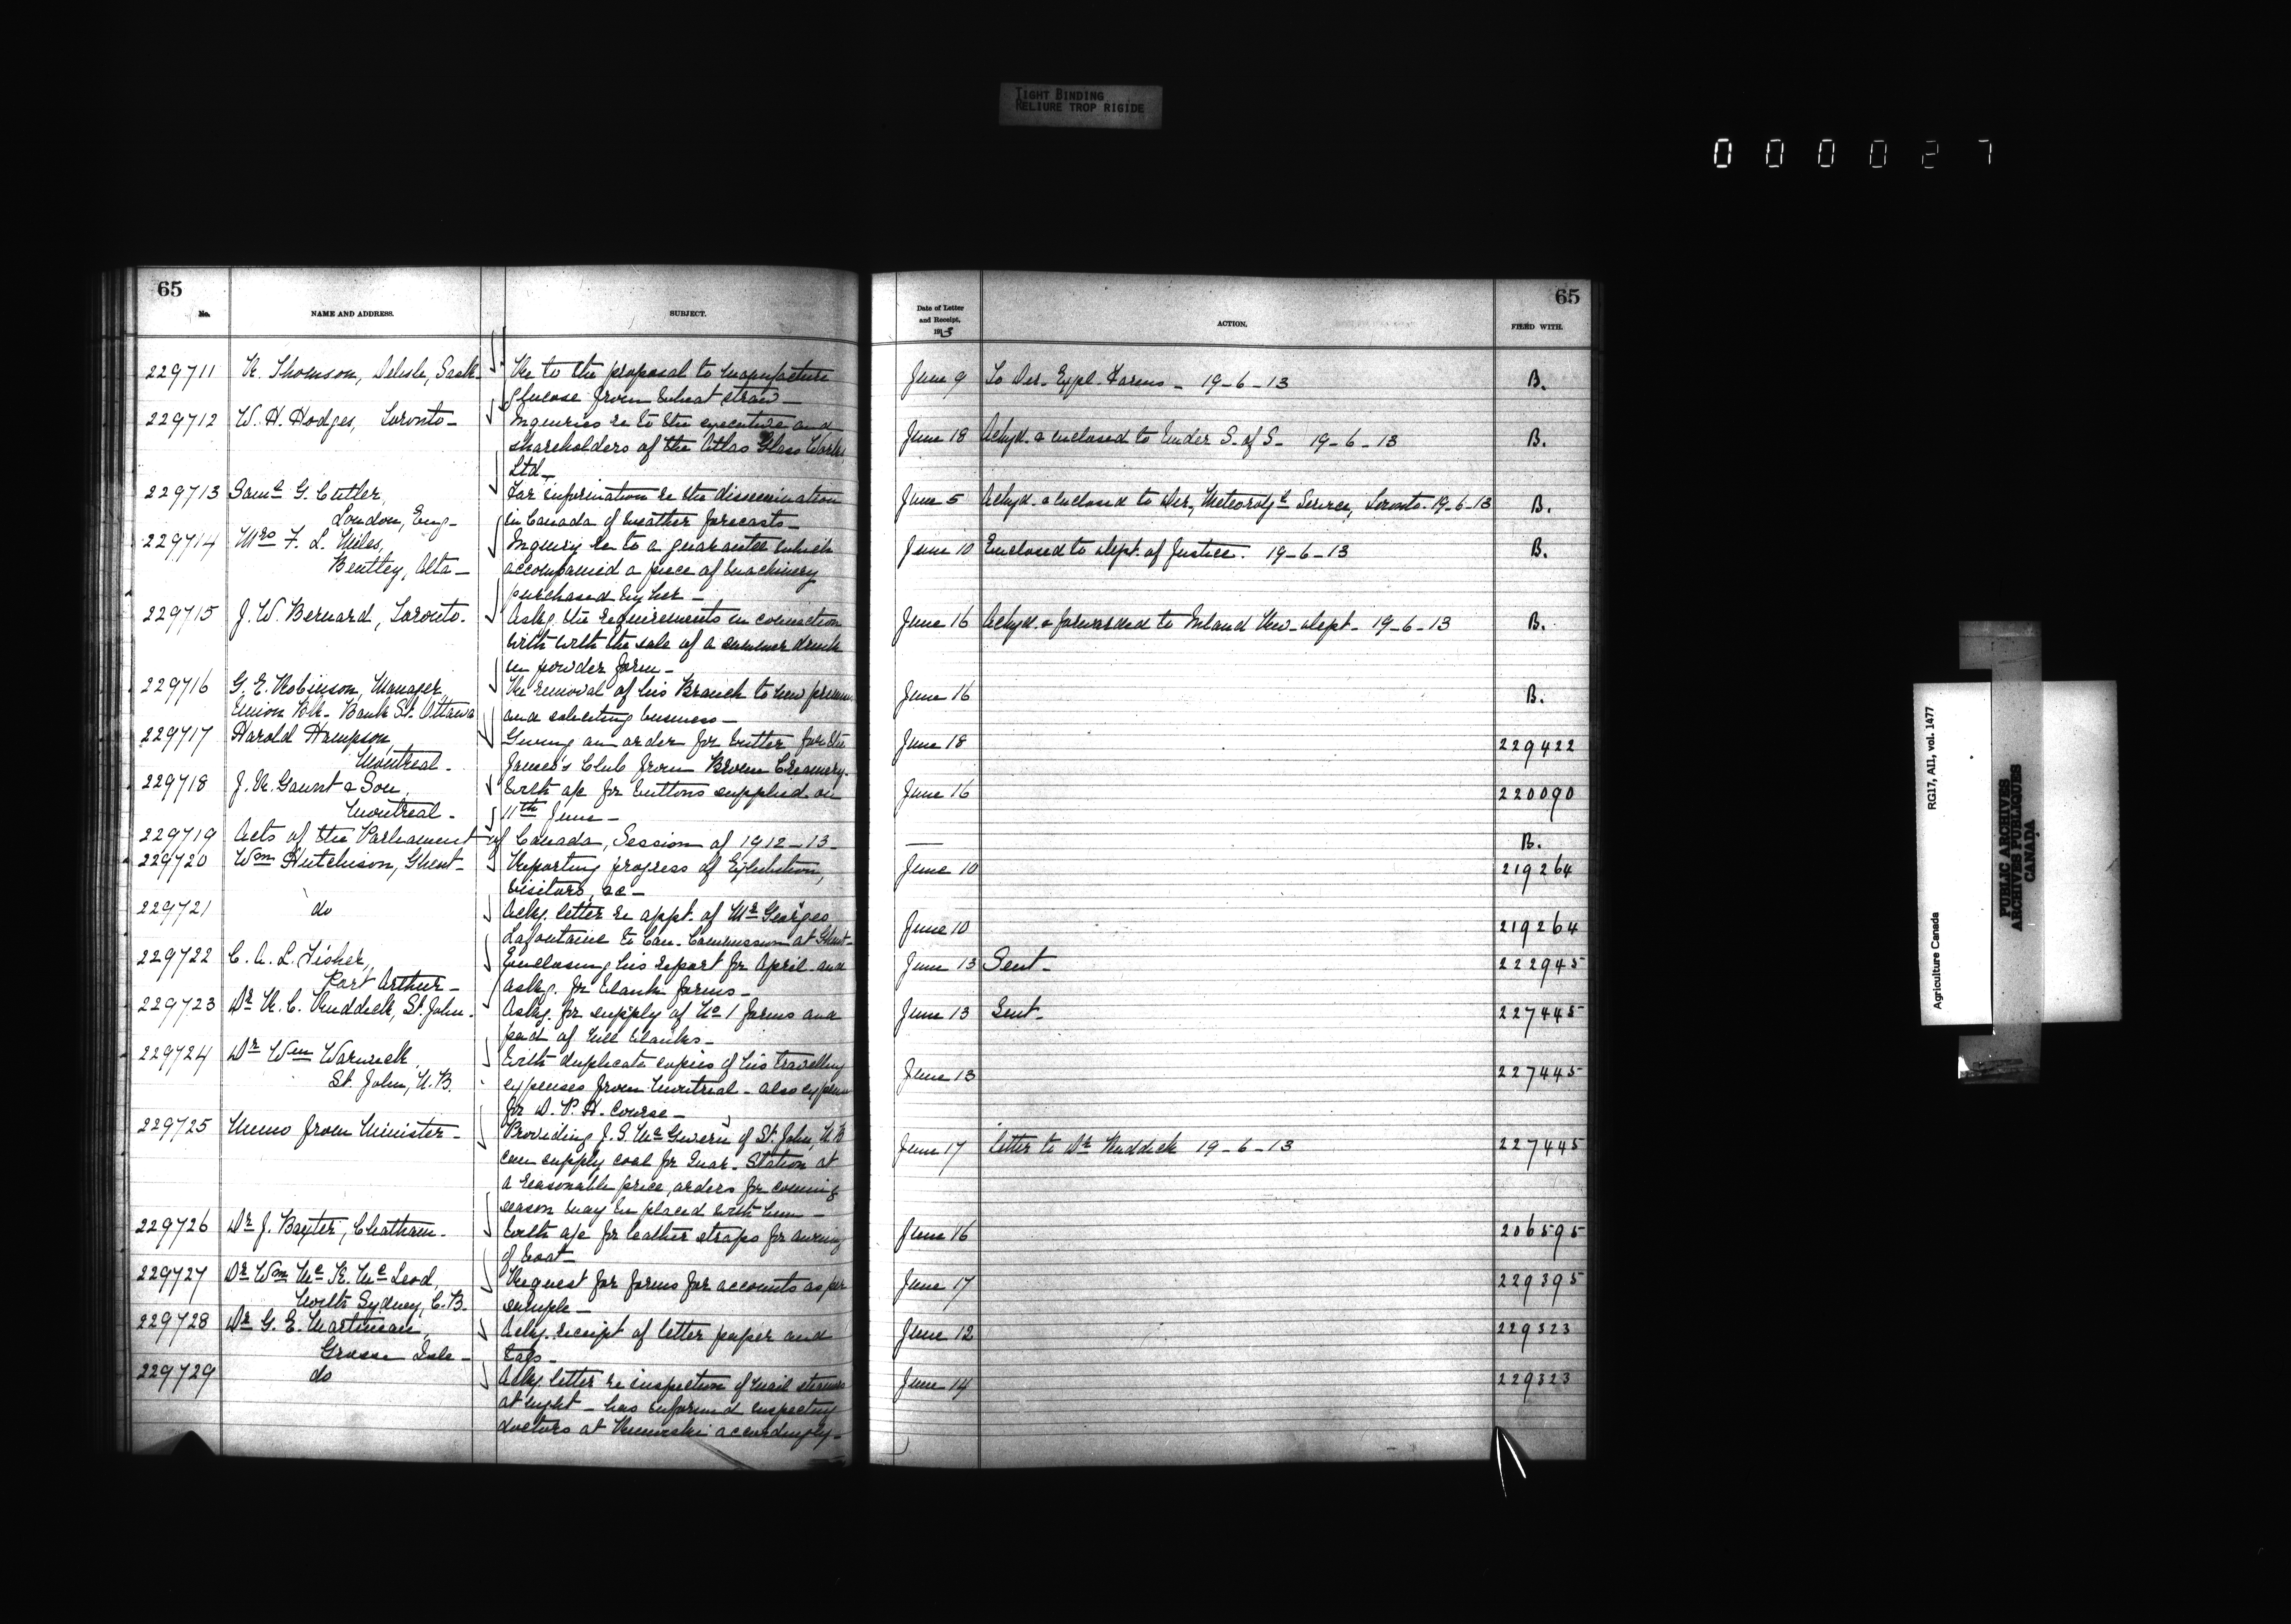 TIGHT BINDING
RELIURE TROP RIGIDE
000027
65
No.
NAME AND ADDRESS.
SUBJECT.
229711 R. Thomson, Delisle, Sask- Re to the proposal to manufacture
glucose from wheat straw-
229712 W. H. Hodges, Toronto- Inquiries re to the executive and
shareholders of the Atlas Glass Works,
Ltd-
229713 Saml G. Cutler, For information re the dissemination
London, Eng- in Canada of weather forecasts-
229714 Mrs F. L. Miles, Inquiry re to a guarantee which
Bentley, Alta- accompanied a piece of machinery
purchased by her-
229715 J. W. Bernard, Toronto. Askg. the requirements in connection
with with the sale of a summer drink
in powder form-
229716 G. E. Robinson, Manager, Re removal of his Branch to new
Union Bk. Bank St. Ottawa and soliciting business-
229717 Harold Hampson, Giving an order for butter for the
Montreal- James's Club from Brome Creamery.
229718 J. R. Gaunt & Son, With a/c for buttons supplied on
Montreal- 11th June-
229719 Acts of the Parliament of Canada, Session of 1912-13-
229720 Wm Hutchison, Ghent- Reporting progress of Exhibition,
visitors, &c-
229721 do Ackg. letter re appt. of Mr Georges
Lafontaine to Can. Commission at Ghent-
229722 C. A. L. Fisher, Enclosing his report for April and
Port Arthur- askg. for blank forms-
229723 Dr R. C. Ruddick, St. John- Askg. for supply of No 1 forms and
pad of bill blanks-
229724 Dr Wm Warwick, With duplicate copies of his travelling
St. John, N.B. expenses from Montreal- also
for D. P. H. Course-
229725 Memo from Minister- Providing J. S. McGivern of St. John, N.B
can supply coal for Quar. Station at
a reasonable price, orders for coming
season may be placed with him-
229726 Dr J. Baxter, Chatham- With a/c for leather straps for awning
of boat-
229727 Dr Wm Mc K. McLeod, Request for forms for accounts as per
North Sydney, C.B. sample-
229728 Dr G. E. Martineau, Ackg. receipt of letter paper and
Grosse Isle- tabs-
229729 do Ackg. letter re inspection of mail steamers
at night- has informed inspecting
doctors at Rimouski accordingly-
65
Date of Letter
and Receipt,
1913
ACTION.
FILED WITH.
June 9 To Dir. Expl. Farms- 19-6-13 B.
June 18 Ackgd. & enclosed to Under S. of S- 19-6-13 B.
June 5 Ackgd. & enclosed to Dir., Meteorolgl Service, Toronto. 19-6-13 B.
June 10 Enclosed to Dept. of Justice. 19-6-13 B.
June 16 Ackgd. & forwarded to Inland Rev. Dept. 19-6-13 B.
June 16 B.
June 18 229422
June 16 220090
— B.
June 10 219264
June 10 219264
June 13 Sent- 222945
June 13 Sent- 227445
June 13 227445
June 17 Letter to Dr Ruddick 19-6-13 227445
June 16 206595
June 17 229395
June 12 229323
June 14 229323
Agriculture Canada RG17, AII, vol. 1477
PUBLIC ARCHIVES
ARCHIVES PUBLIQUES
CANADA